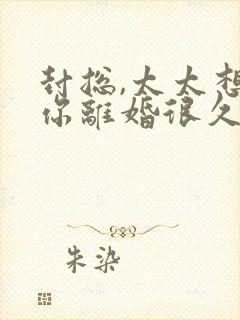 封总,太太想
你離婚很久
朱染